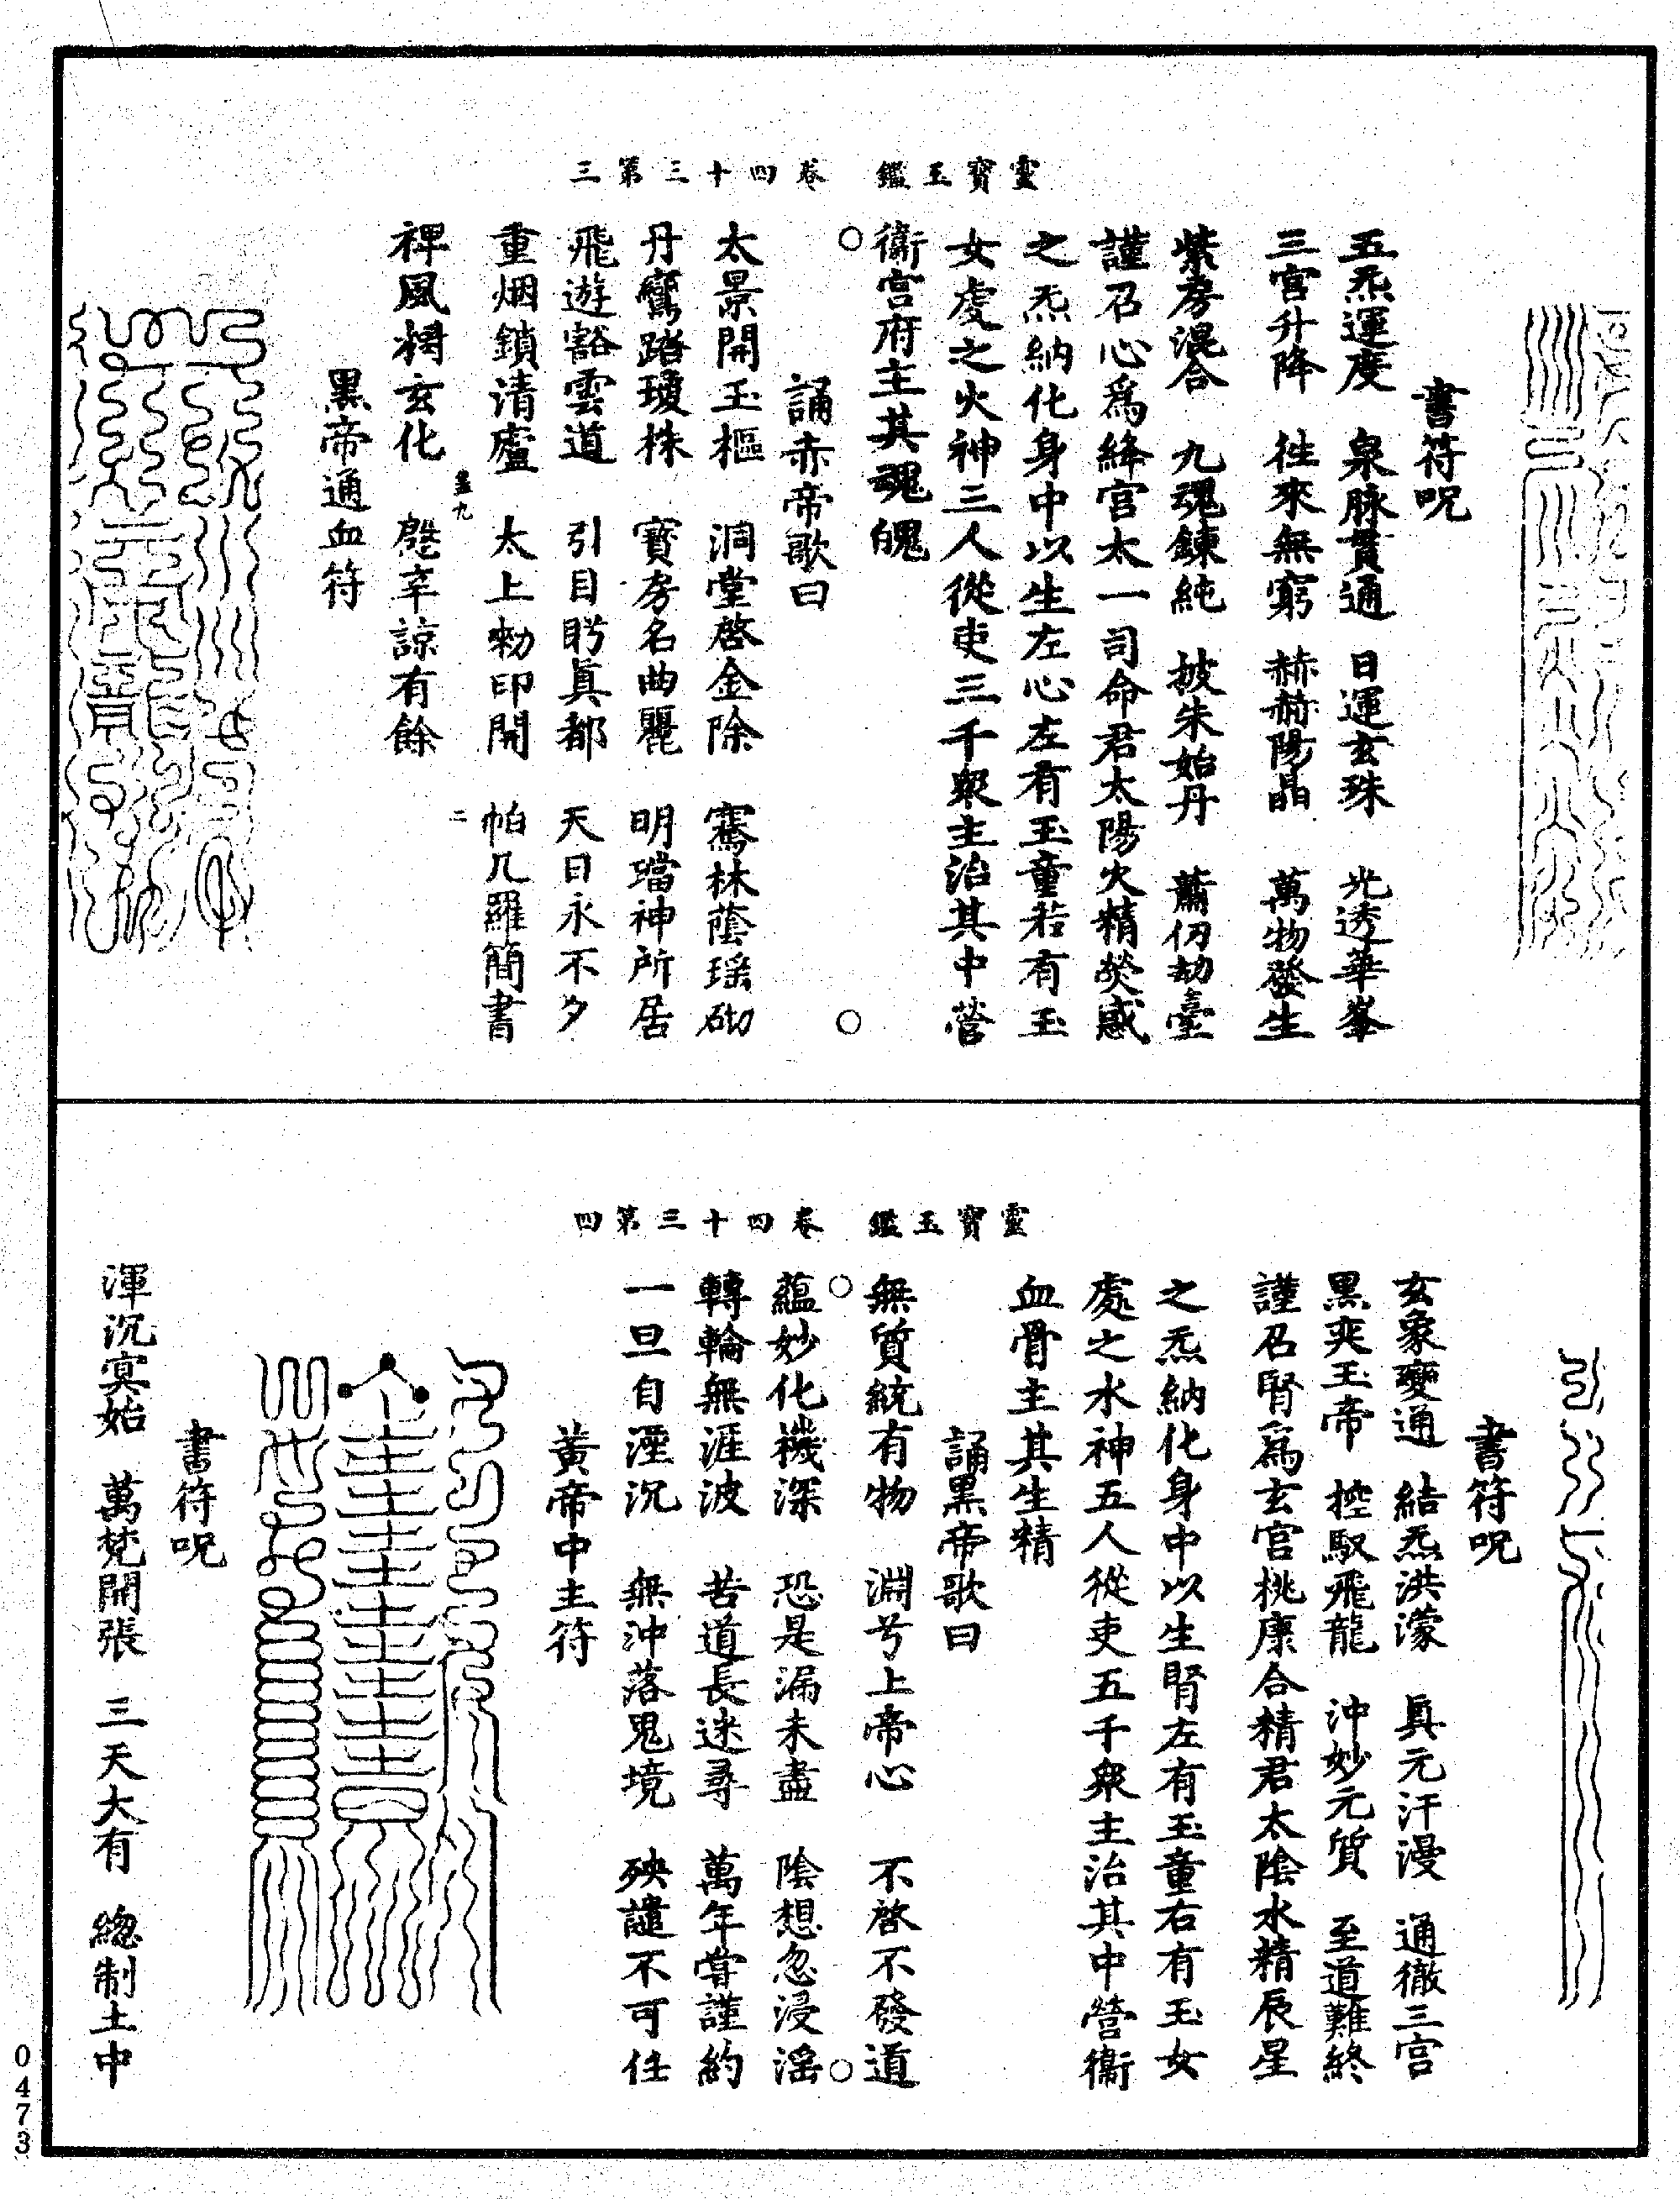 靈寶玉鑑　卷四十三第三
書符呪
五炁運度　泉脉貫通　日運玄珠　光透華峯
三宮升降　往來無窮　赫赫陽晶　萬物發生
紫房混合　九魂鍊純　披朱始丹　蕭仞劫臺
謹召心爲絳宮太一司命君太陽火精熒惑
之炁納化身中以生左心左有玉童若有玉
女處之火神三人從吏三千衆主治其中營
衞宮府主其魂魄
誦赤帝歌曰
太景開玉樞　洞堂啓金除　騫林蔭瑶砌
丹鸞踏瓊株　寶房名曲麗　明璫神所居
飛遊豁雲道　引目眄眞都　天日永不夕
重烟鎖清廬　太上勑印開　帕几羅簡書
裨風樹玄化　辛諒有餘
二
黑帝通血符
靈寶玉鑑　卷四十三第四
書符呪
玄象變通　結炁洪濛　眞元汗漫　通徹三宮
黑爽玉帝　控馭飛龍　沖妙元質　至道難終
謹召腎爲玄宮桃康合精君太陰水精辰星
之炁納化身中以生腎左有玉童右有玉女
處之水神五人從吏五千衆主治其中營衞
血骨主其生精
誦黑帝歌曰
無質統有物　淵兮上帝心　不啓不發道
蘊妙化機深　恐是漏未盡　陰想忽浸淫
轉輪無涯波　苦道長迷尋　萬年嘗謹約
一旦自湮沉　無沖落鬼境　殃譴不可任
黃帝中主符
書符呪
渾沉冥始　萬梵開張　三天大有　總制土中
0473